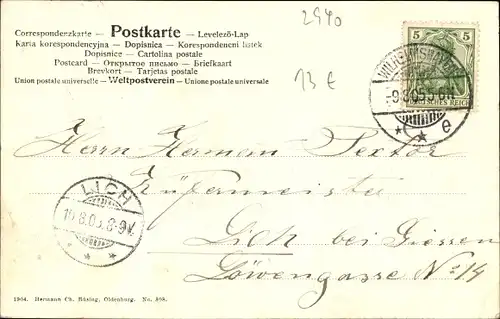 2940
Correspondenzkarte — Postkarte — Levelező-Lap
Karta korespondencyjna — Dopisnica — Korespondenčni listek
Dopisnice — Cartolina postale
Postcard — Открытое письмо — Briefkaart
Brevkort — Tarjetas postale
Union postale universelle — Weltpostverein — Unione postale universale
13 €
5 5
DEUTSCHES REICH
WILHELMSHAVEN
9.8.05.5-6N.
* * e
Herrn Hermann Textor
Küfermeister
Lich bei Giessen
Löwengasse No 14
LICH
10.8.05.8-9V.
* *
1964. Hermann Ch. Büsing, Oldenburg. No. 808.